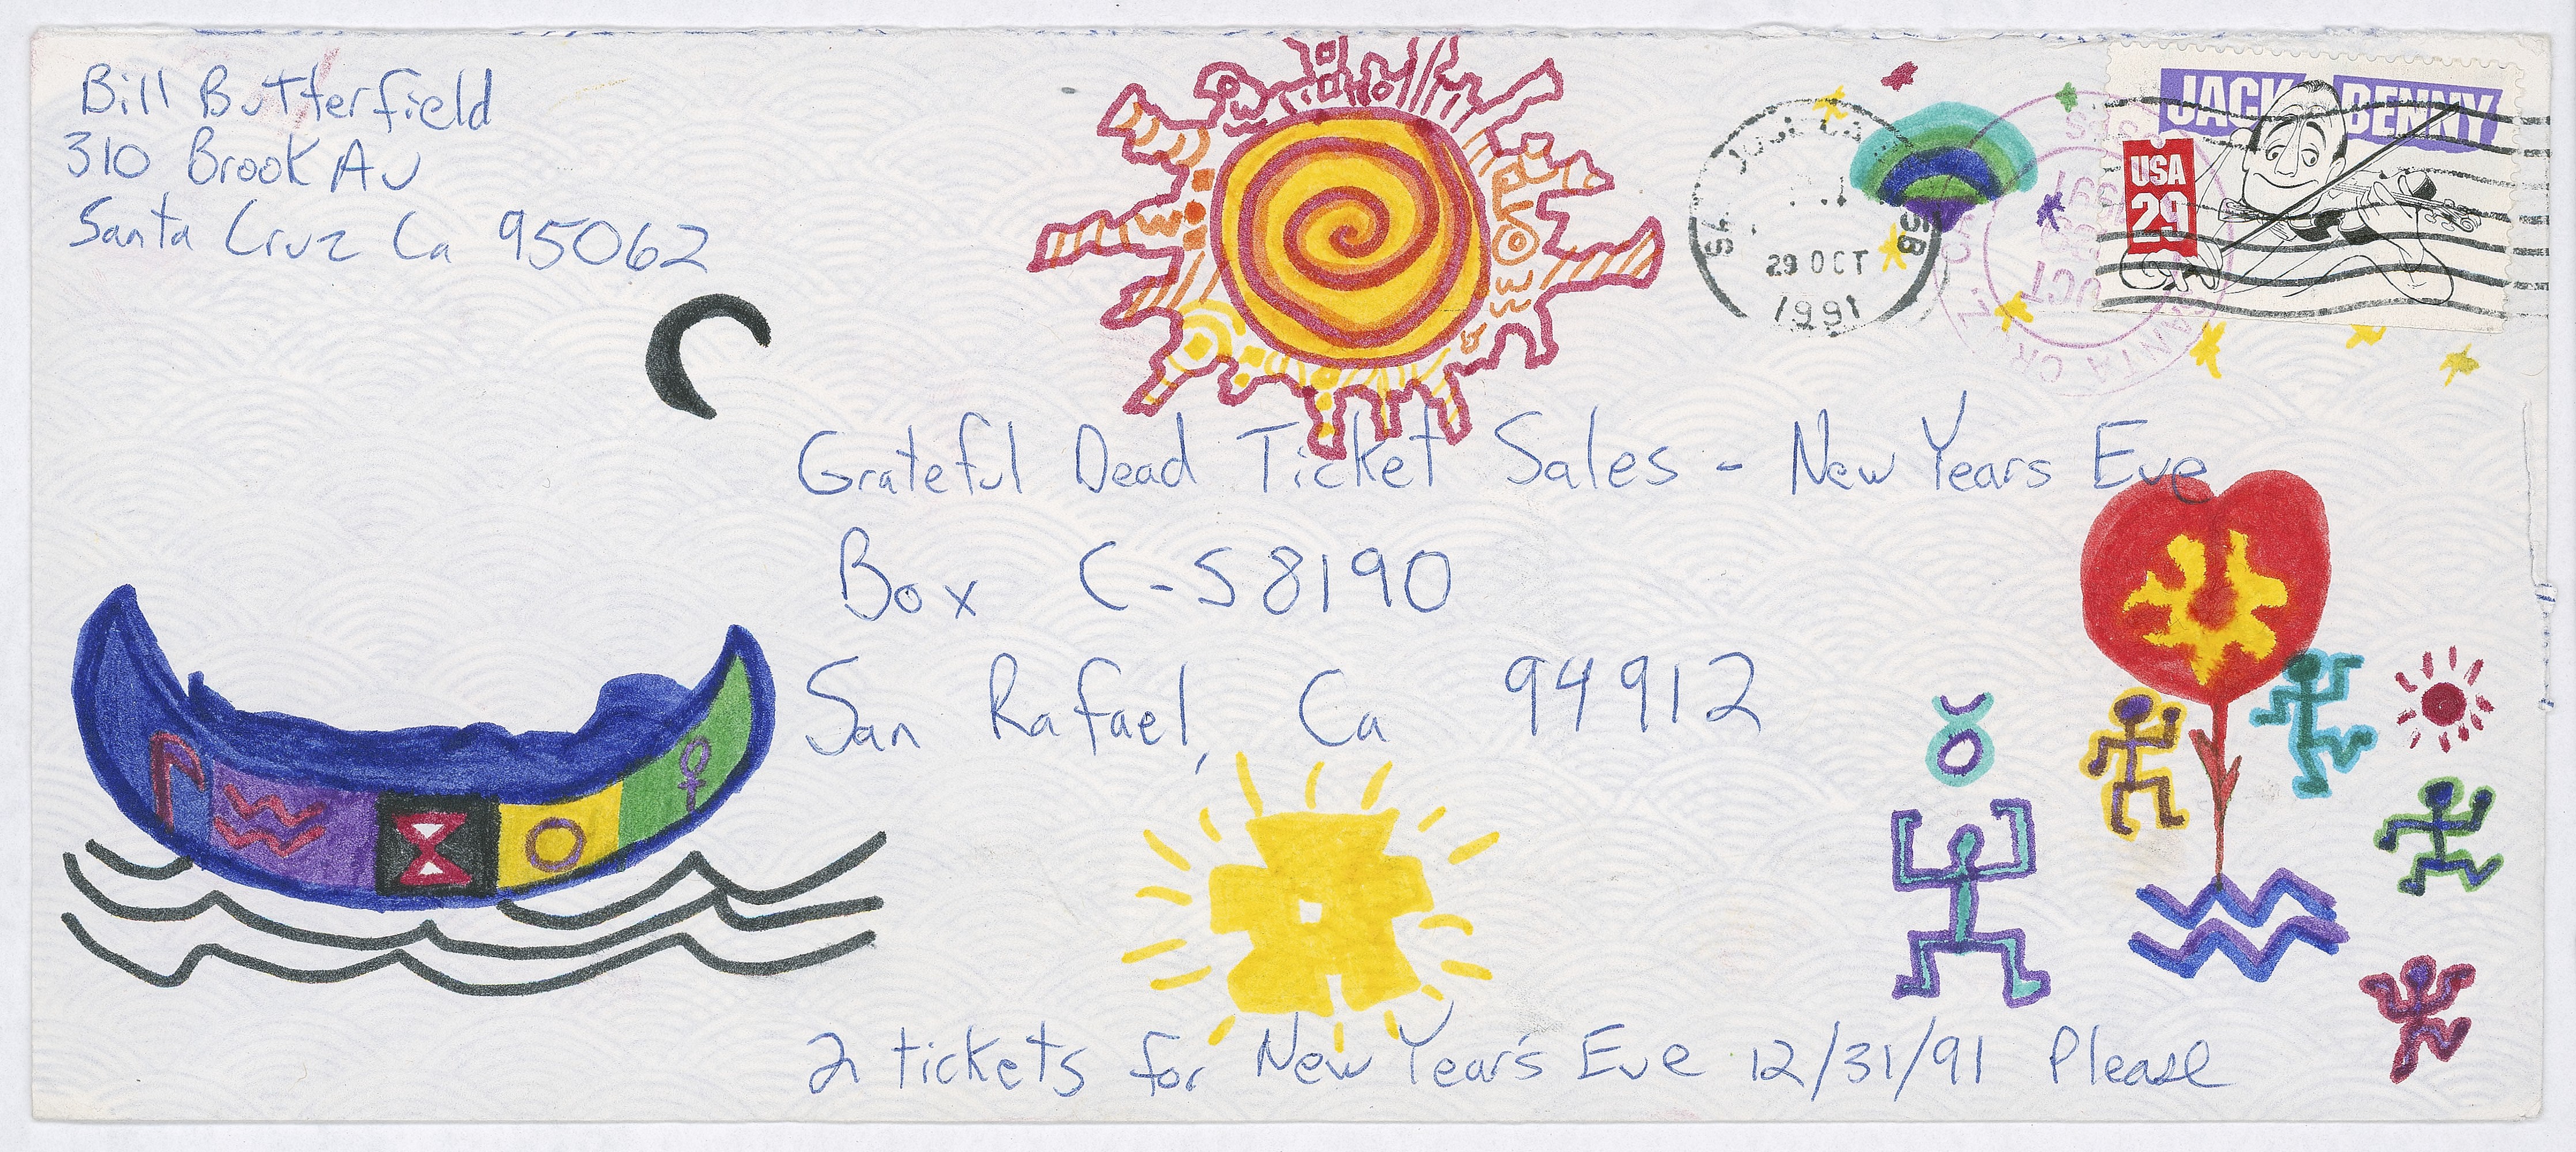 Bill Butterfield
310 Brook Av
Santa Cruz Ca 95062
SAN JOSE CA
29 OCT
1991
SANTA CRUZ
OCT
1991
JACK BENNY
USA
29
Grateful Dead Ticket Sales - New Years Eve
Box C-S 8190
San Rafael, Ca 94912
2 tickets for New Year's Eve 12/31/91 Please